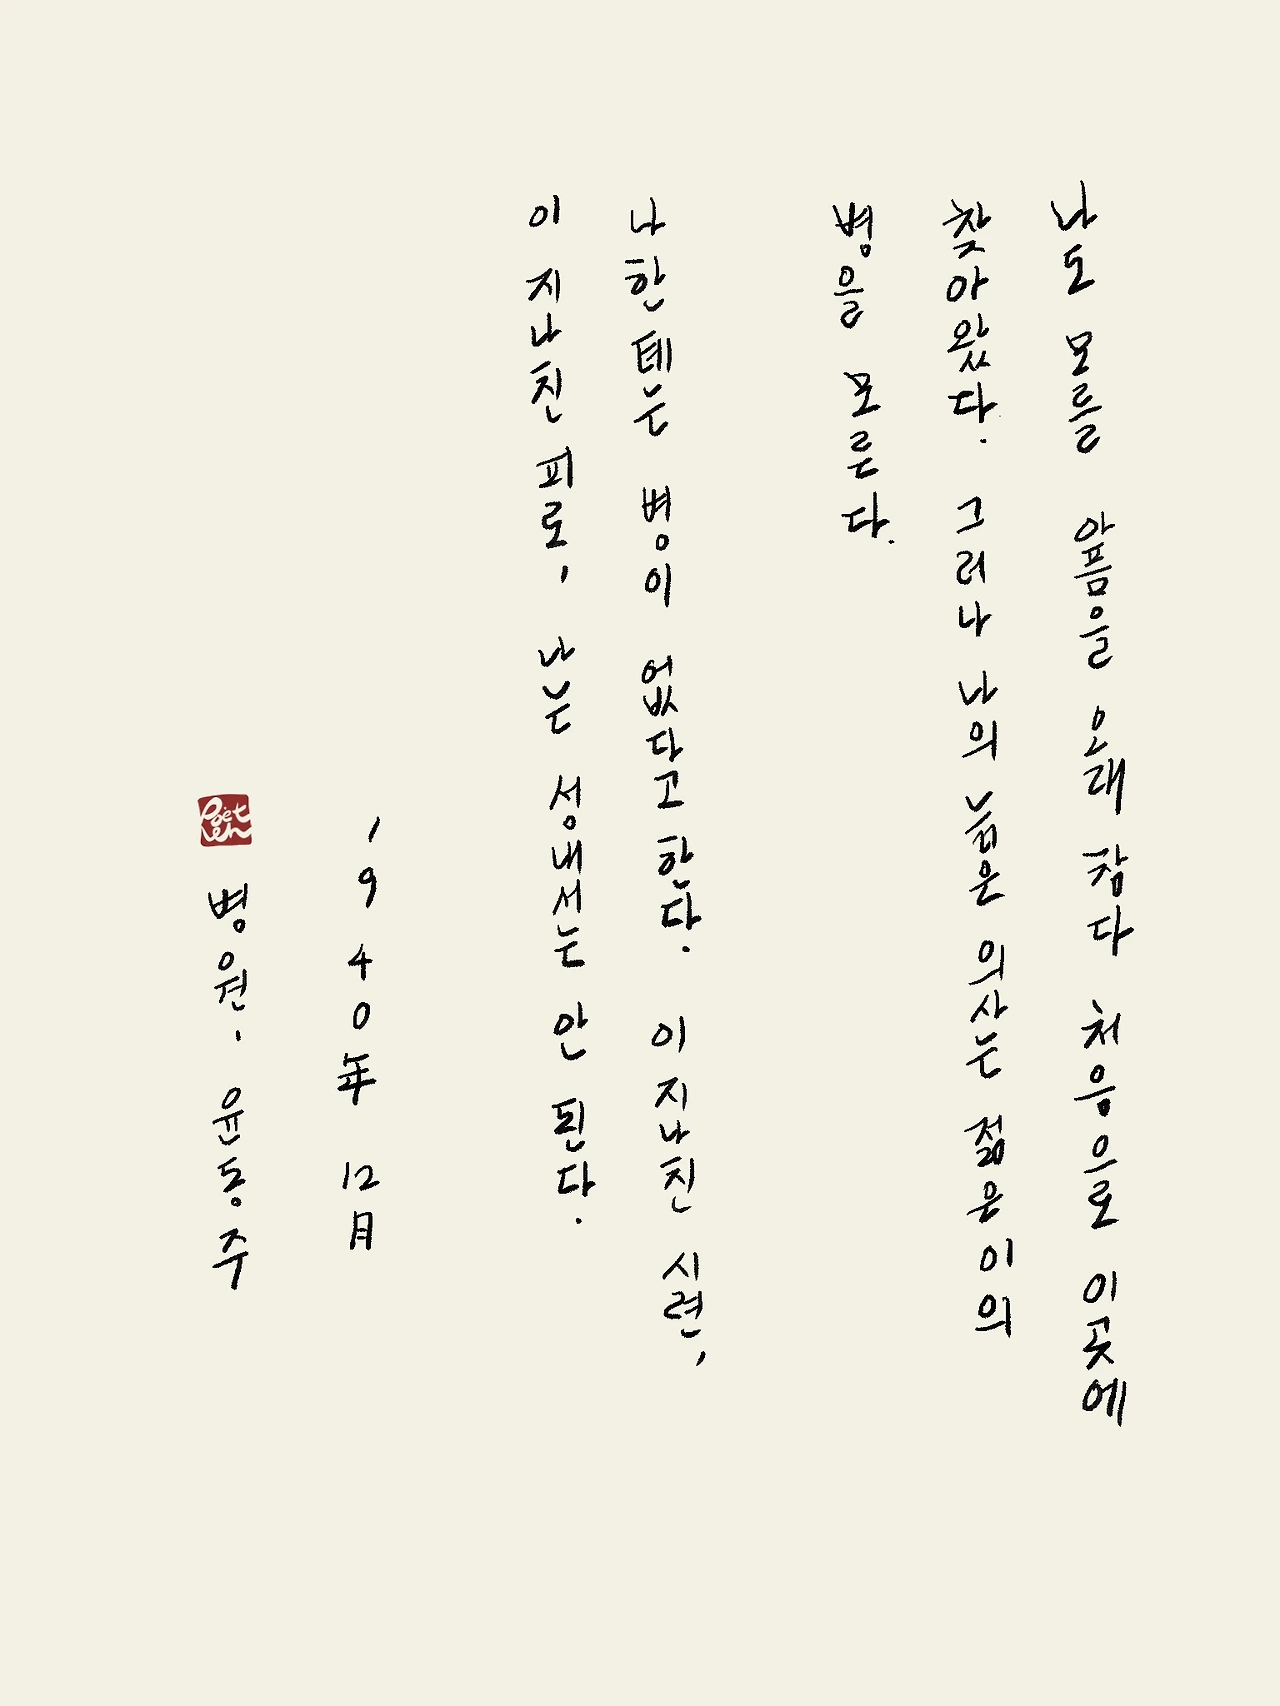 나도 모를 아픔을 오래 참다 처음으로 이곳에
찾아왔다. 그러나 나의 늙은 의사는 젊은이의
병을 모른다.
나한테는 병이 없다고 한다. 이 지나친 시련,
이 지나친 피로, 나는 성내서는 안 된다.
1940年 12月
병원, 윤동주
Poet